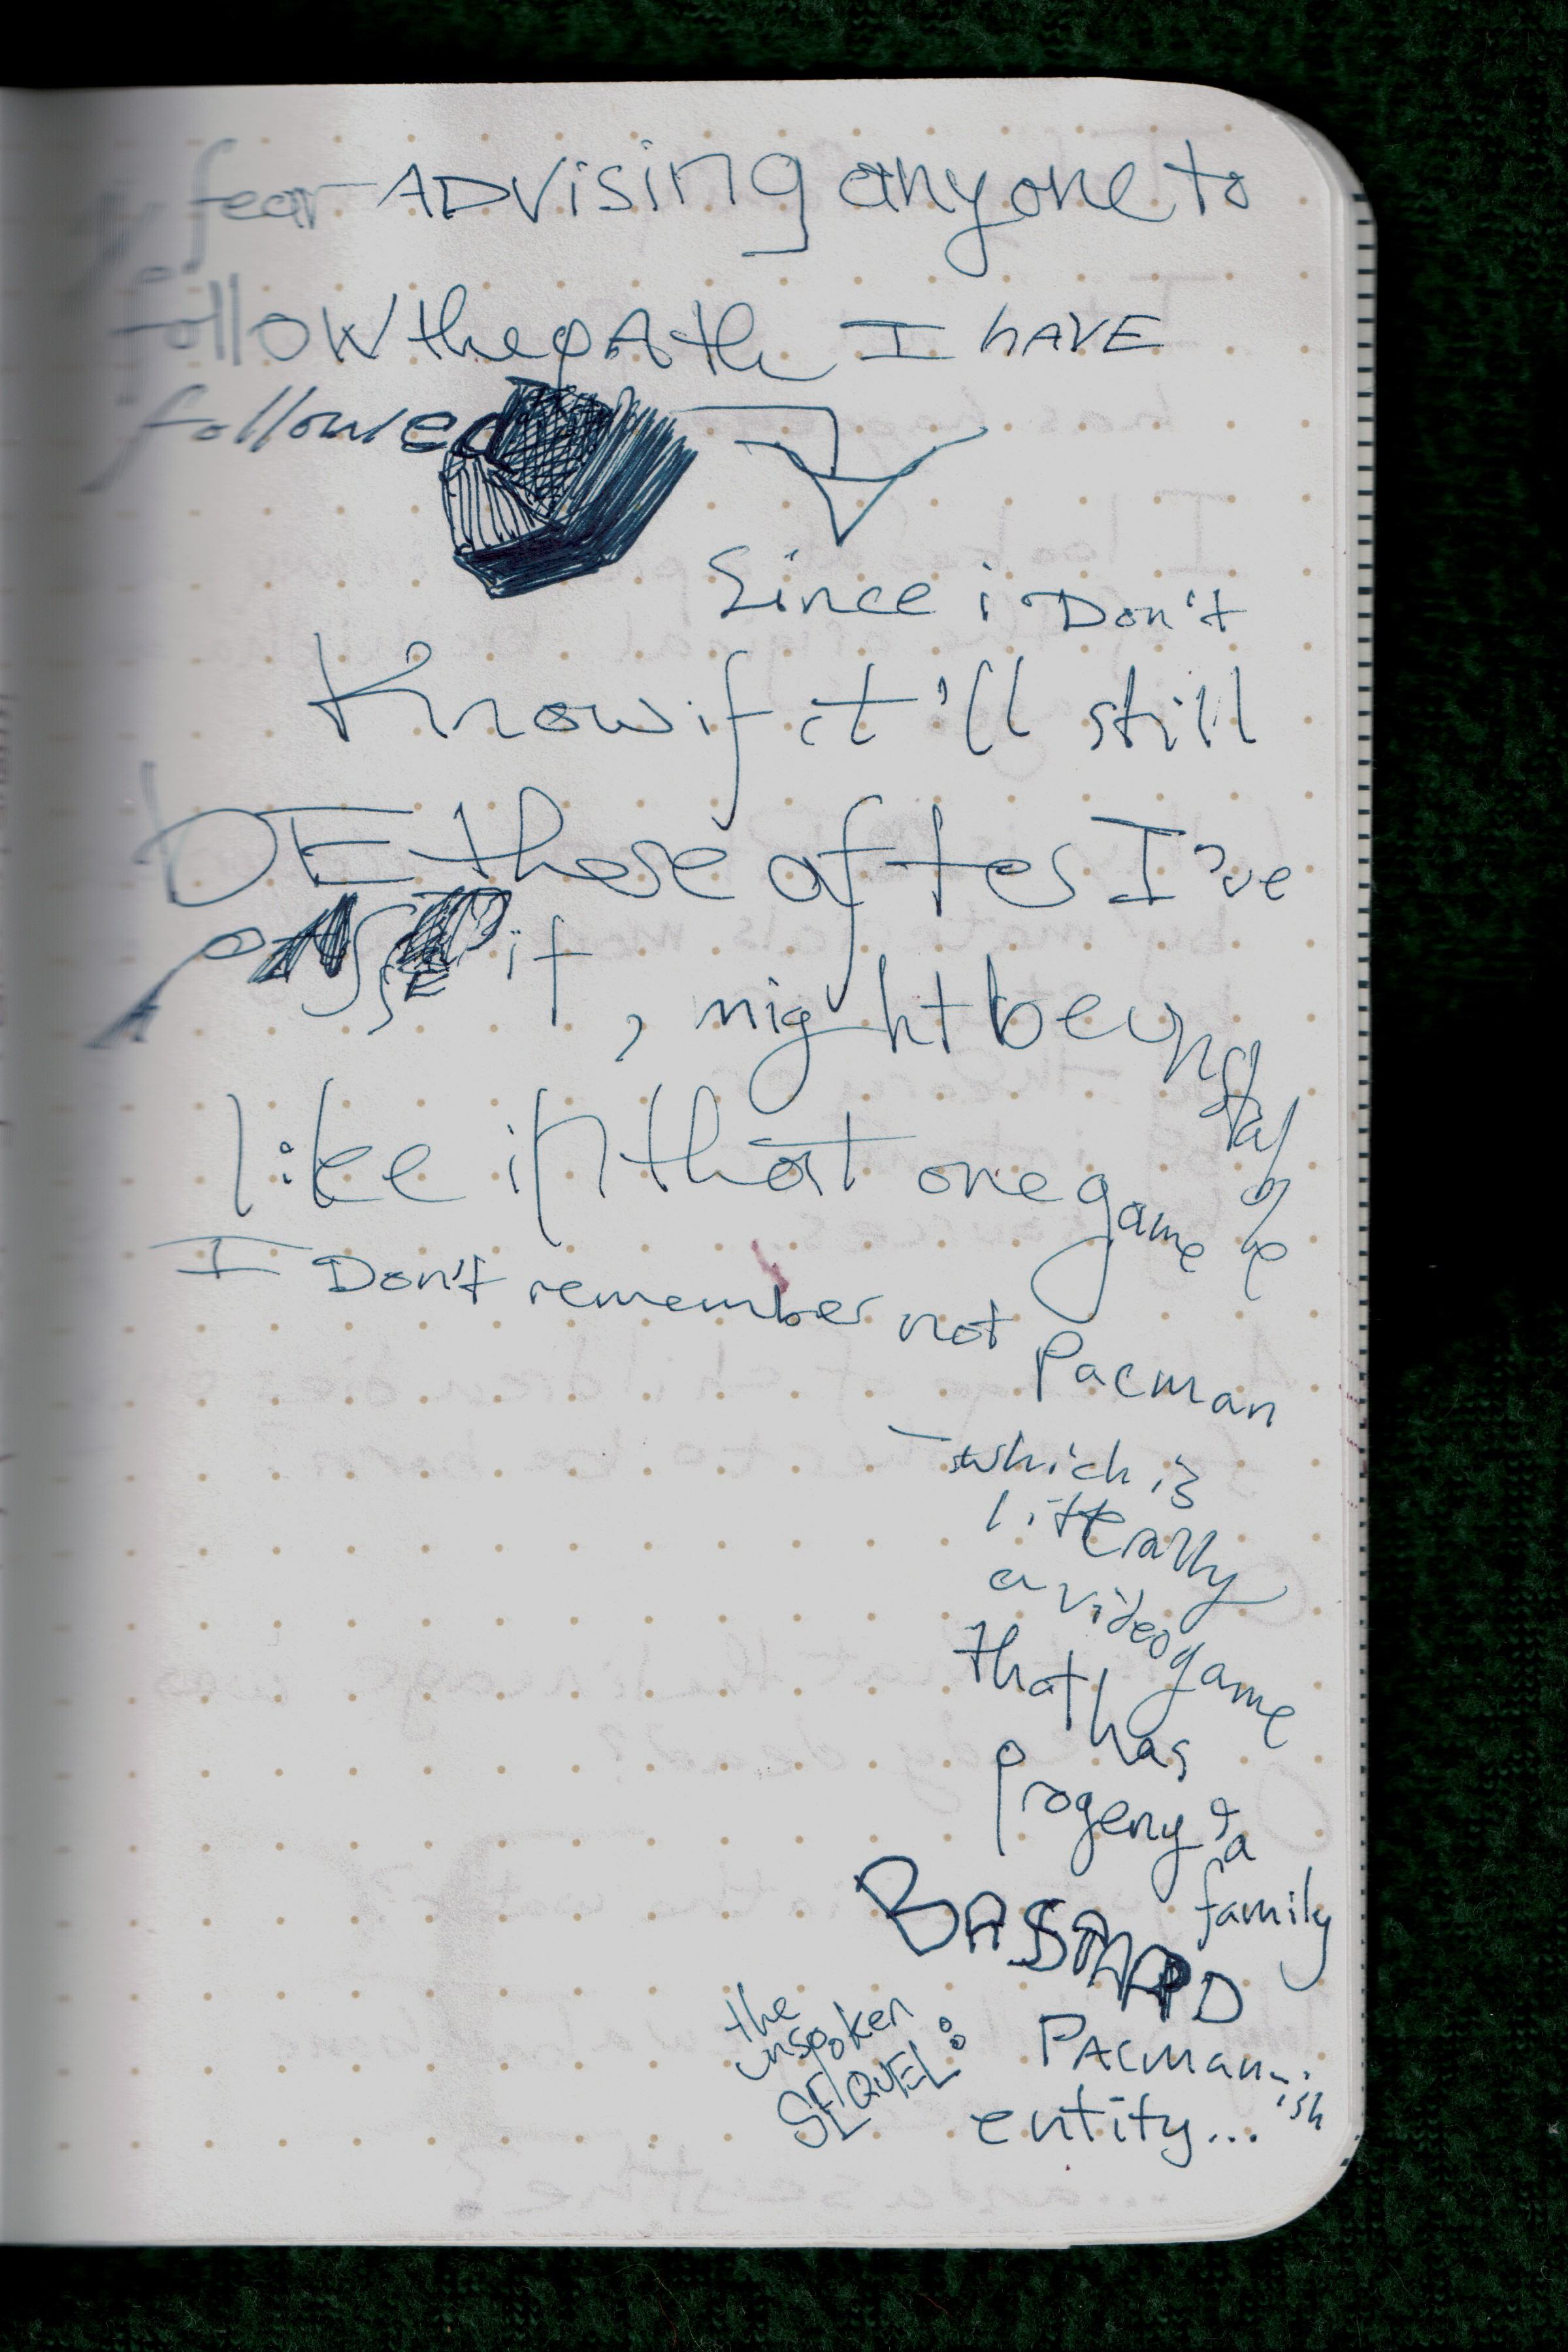 fear ADVising anyone to
follow the pAth I hAVE
followed
Since i Don't
Know if it'll still
bE there after I've
it, might be unstable
like in that one game
I Don't remember not Pacman
- which is
litterally
a videogame
that has
progeny & a
family
BASTARD
the
unspoken
SEQUEL:
Pacman-ish
entity...